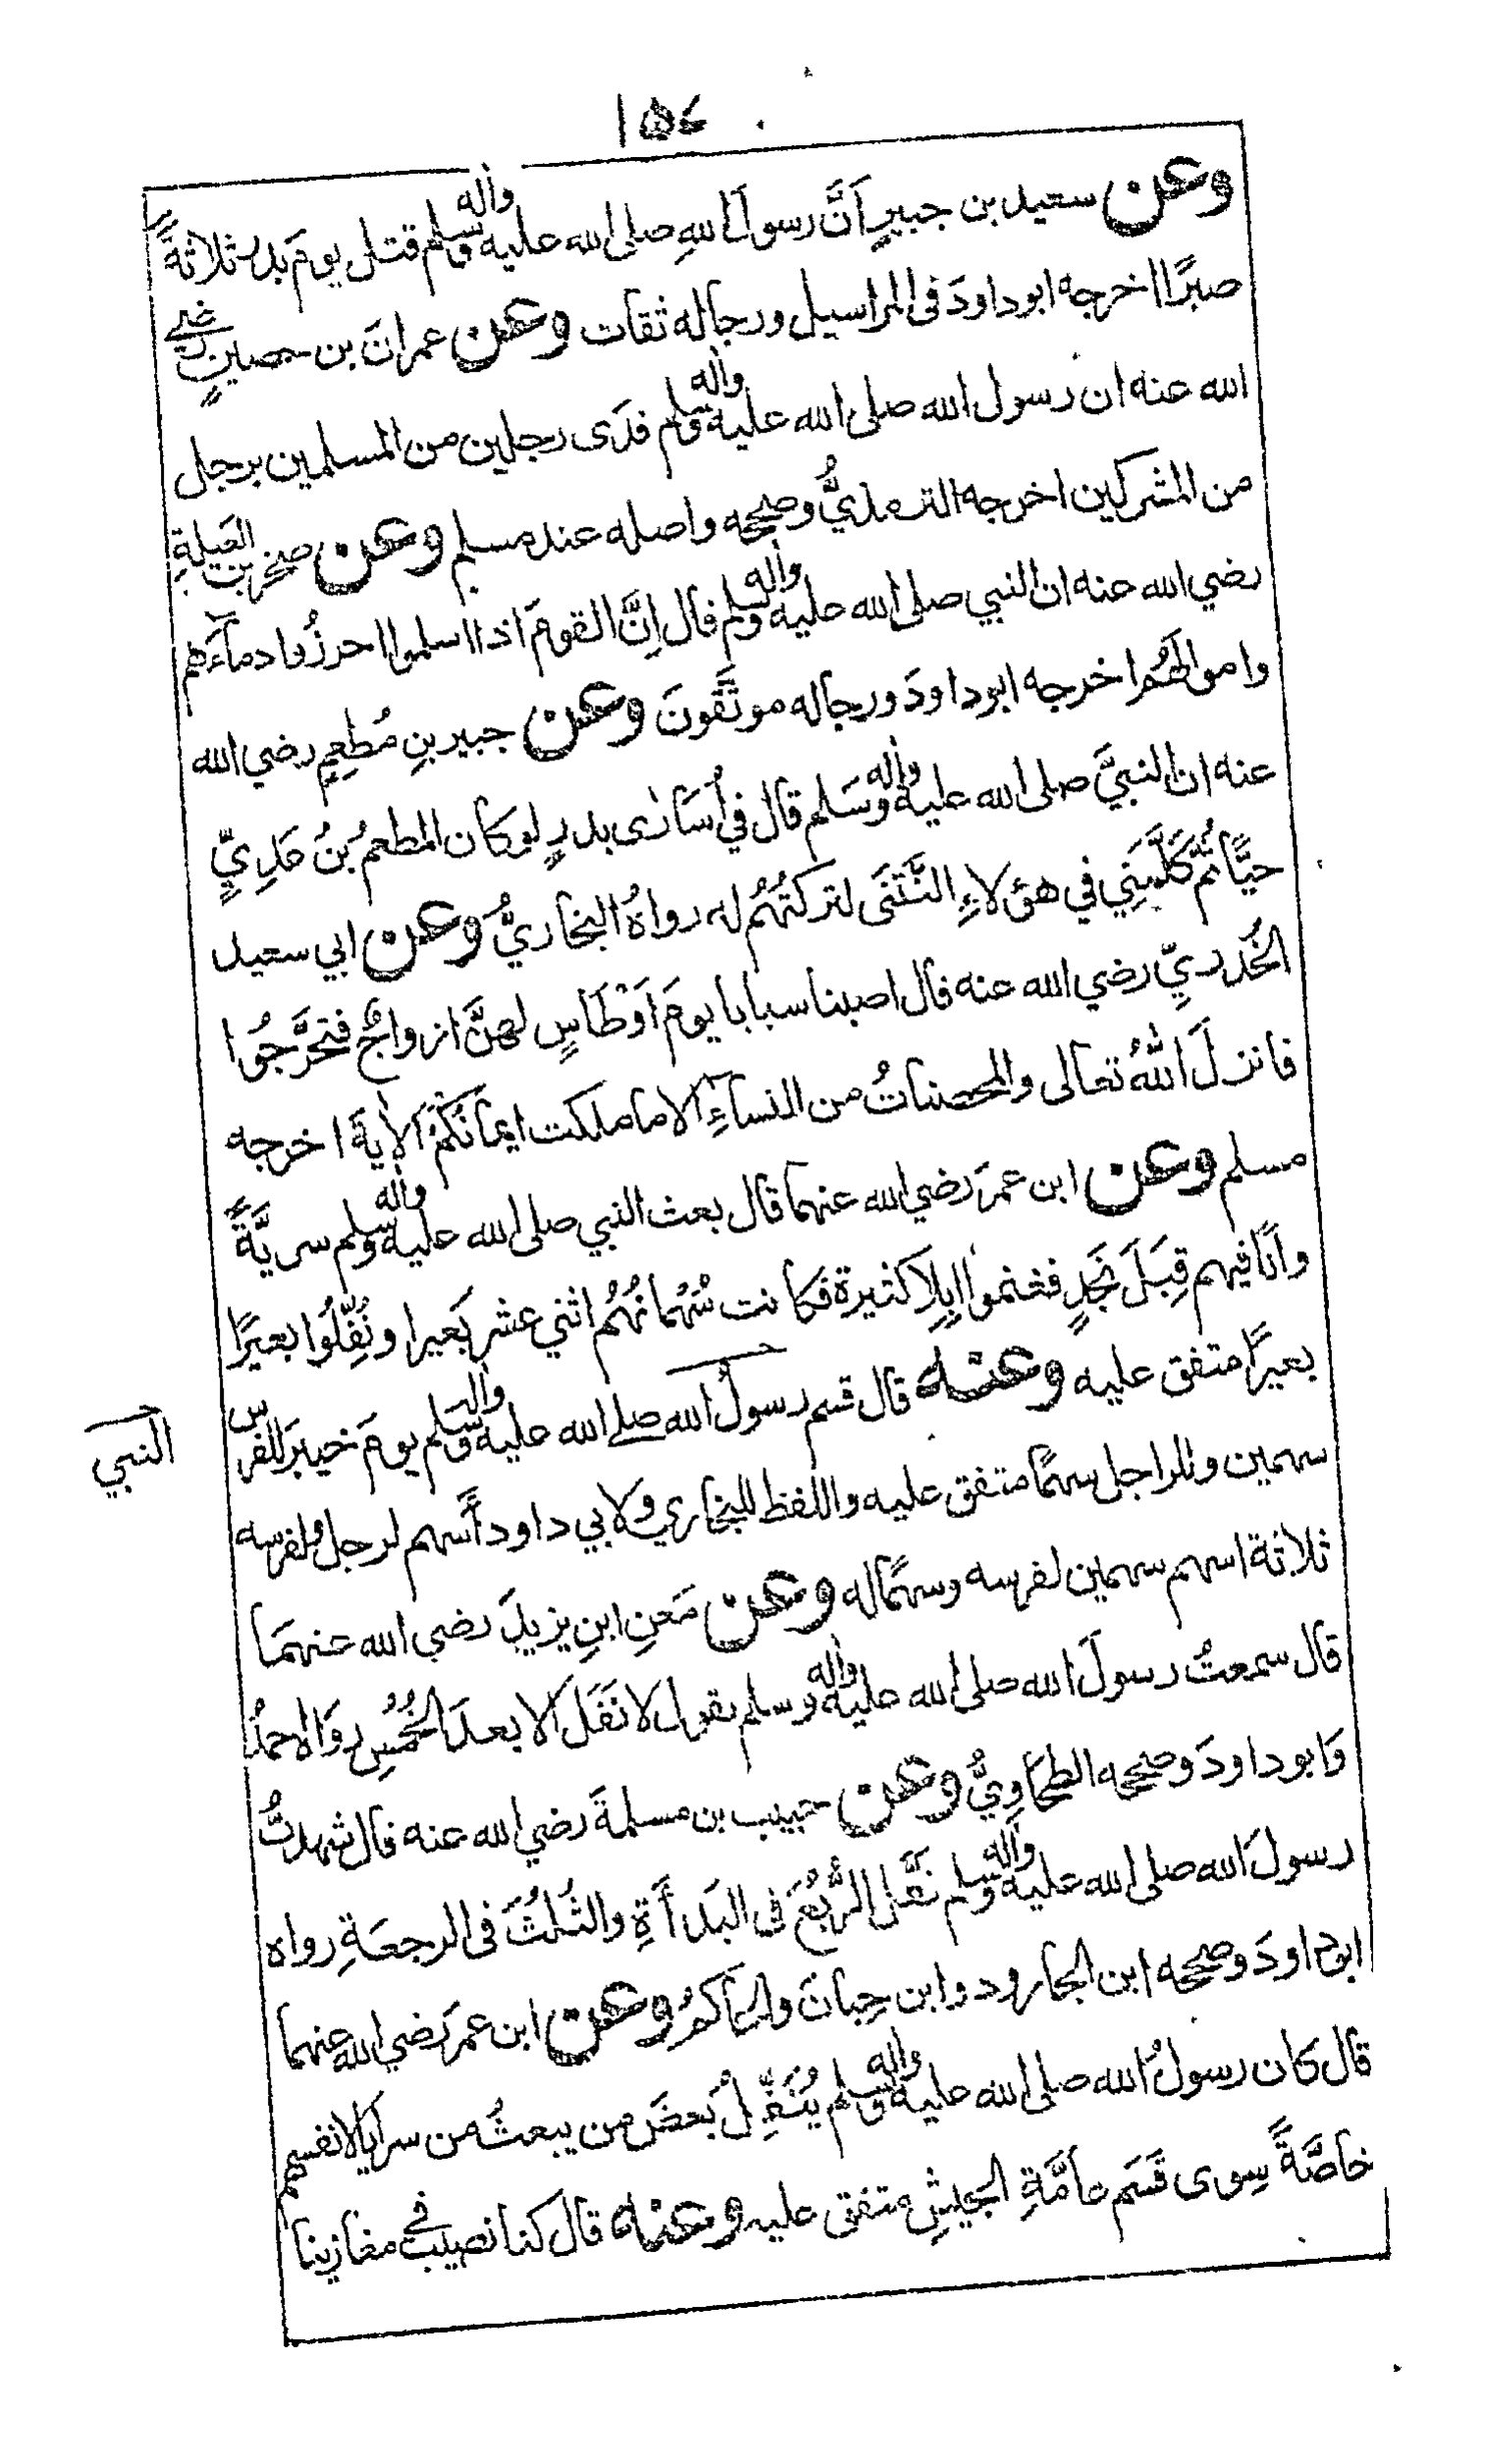 ١٥٤
وعن سعيد بن جبيرٍ اَنَّ رسولَ اللهِ صلى الله عليه واٰله وسلم قتل يومَ بدر ثلاثةً
صبرًا اخرجه ابو داودَ فى المراسيل ورجاله ثقات وعن عمرانَ بن حصينٍ رضي
الله عنه ان رسول الله صلى الله عليه واٰله وسلم فدَى رجلين من المسلمين برجل
من المشركين اخرجه الترمذيُّ وصححه واصله عند مسلم وعن صخر بن العَيلةِ
رضي الله عنه ان النبي صلى الله عليه واٰله وسلم قال اِنَّ القومَ اذا اسلموا احرزُوا دماءَهم
واموالهُم اخرجه ابو داودَ ورجاله موثَّقونَ وعن جبير بنِ مُطعِمٍ رضي الله
عنه ان النبيَّ صلى الله عليه واٰله وسَلم قال في اُسَارٰى بدرٍ لو كان المطعمُ بنُ عَدِيٍّ
حيًّا ثُمَّ كَلَّمَنِي في هؤلاءِ النَّتنَى لتركتُهُم له رواهُ البخاريُّ وعن ابي سعيد
الخُدريِّ رضي الله عنه قال اصبنا سبايا يومَ اَوْطَاسٍ لهنَّ ازواجٌ فتحرَّجُوا
فانزلَ اللهُ تعالى والمحصناتُ من النساءِ الا ما ملكت ايمانُكُمْ الاٰيةَ اخرجه
مسلم وعن ابن عمرَ رضي الله عنهما قال بعث النبي صلى الله عليه واٰله وسلم سريَّةً
واَنَا فيهم قِبَلَ نَجَدٍ فغنموا اِبِلا كثيرة فكانت سُهمانُهُم اثني عشر بَعيرا ونُفِّلُوا بعيرًا
بعيرًا متفق عليه وعنه قال قسم رسولُ الله صلى الله عليه واٰله وسلم يومَ خيبرَ للفرس
النبي
سهمين وللراجل سهمًا متفق عليه واللفظ للبخاري ولابي داود اَسهم لرجل ولفرسه
ثلاثة اسهم سهمين لفرسه وسهمًا له وعن مَعنِ ابنِ يزيدَ رضي الله عنهمَا
قال سمعتُ رسولَ الله صلى الله عليه واٰله وسلم يقول لا نَفَلَ الا بعدَ الخُمُسِ روَاه احمدُ
وَابو داودَ وصححه الطحَاوِيُّ وعن حبيب بن مسلمةَ رضي الله عنه قال شهدتُ
رسولَ الله صلى الله عليه واٰله وسلم نَفَّلَ الرُّبُعَ فى البَدأَةِ والثُلُثَ فى الرجعَةِ رواه
ابو داودَ وصححه ابن الجارود وابن حِبانَ والحاكمُ وعن ابن عمرَ رضي الله عنهما
قال كان رسولُ الله صلى الله عليه واٰله وسلم يُنَفِّلُ بعضَ من يبعثُ من سرايا لانفسهم
خاصَّةً سِوى قَسَم عامَّةِ الجيشِ متفق عليه وعنه قال كنا نصيب فى مغازينا